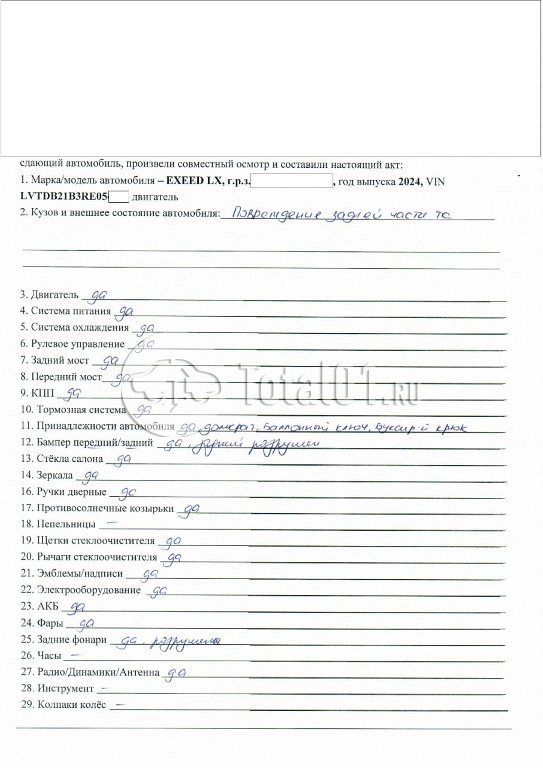 сдающий автомобиль, произвели совместный осмотр и составили настоящий акт:
1. Марка/модель автомобиля – EXEED LX, г.р.з. , год выпуска 2024, VIN
LVTDB21B3RE05 двигатель
2. Кузов и внешнее состояние автомобиля: Повреждение задней части тс
3. Двигатель да
4. Система питания да
5. Система охлаждения да
6. Рулевое управление да
7. Задний мост да
8. Передний мост да
Total01.ru
9. КПП да
10. Тормозная система да
11. Принадлежности автомобиля да, домкрат, Баллонный ключ, Буксир-й крюк
12. Бампер передний/задний да, задний разрушен
13. Стёкла салона да
14. Зеркала да
16. Ручки дверные да
17. Противосолнечные козырьки да
18. Пепельницы –
19. Щетки стеклоочистителя да
20. Рычаги стеклоочистителя да
21. Эмблемы/надписи да
22. Электрооборудование да
23. АКБ да
24. Фары да
25. Задние фонари да, разрушены
26. Часы –
27. Радио/Динамики/Антенна да
28. Инструмент –
29. Колпаки колёс –